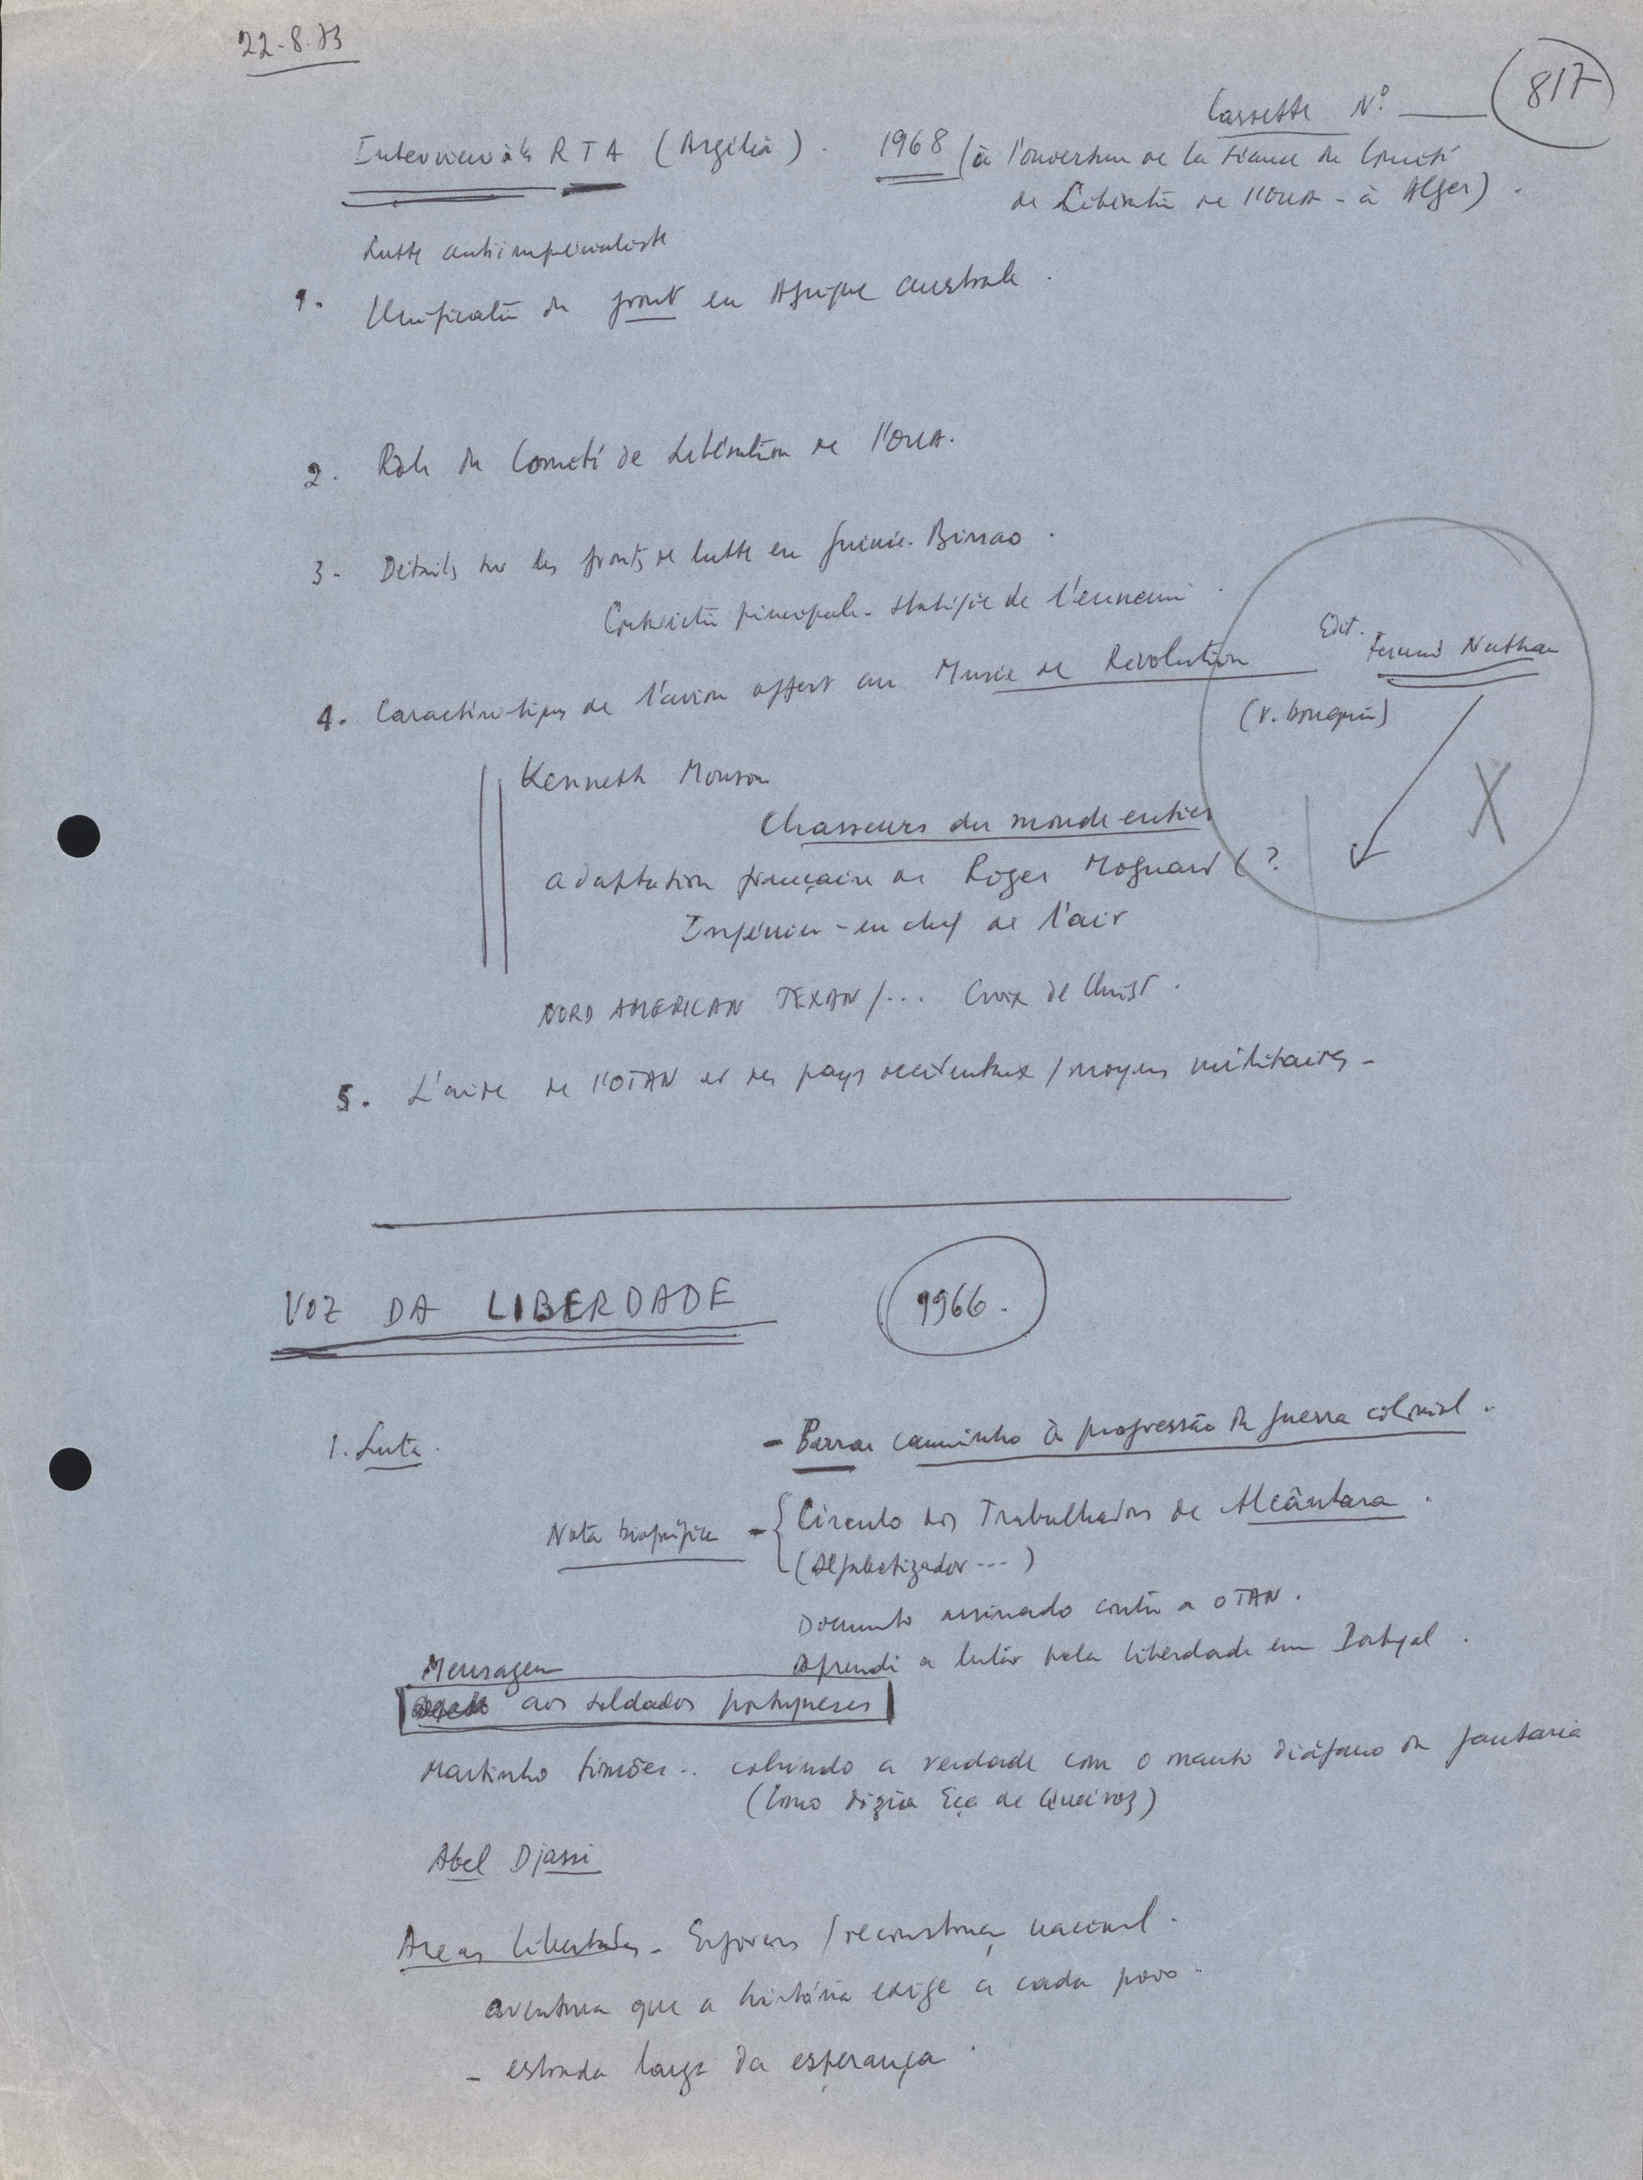 22-8-73
817
Cassette Nº
Interview à la RTA (Argélia). 1968 (à l'ouverture de la séance du Comité
de Libération de l'OUA - à Alger).
Lutte antiimpérialiste
1. Unification du front en Afrique australe.
2. Rôle du Comité de Libération de l'OUA.
3- Détails sur les fronts de lutte en Guinée-Bissao.
Contradiction principale - stratégie de l'ennemi.
4. Caractéristiques de l'avion offert au Musée de Révolution
Edit. Fernand Nathan
(v. bouquin)
X
Kenneth Monson
Chasseurs du monde entier
adaptation française de Roger Mognard (?
Ingénieur-en chef de l'air
NORD AMERICAN TEXAN /... Croix de Christ.
5. L'aide de l'OTAN et des pays occidentaux / moyens militaires-
VOZ DA LIBERDADE 1966.
1. Luta. - Barrar caminho à progressão da guerra colonial.
Nota biográfica - Círculo dos Trabalhadores de Alcântara.
(Alfabetizador---)
Documento assinado contra a OTAN.
Aprendi a lutar pela liberdade em Portugal.
Mensagem
aos soldados portugueses
Martinho Simões.. cobrindo a verdade com o manto diáfano da fantasia
(Como dizia Eça de Queiroz)
Abel Djassi
Areas libertadas - Esforços / reconstrução nacional.
aventura que a história exige a cada povo.
- estrada larga da esperança.